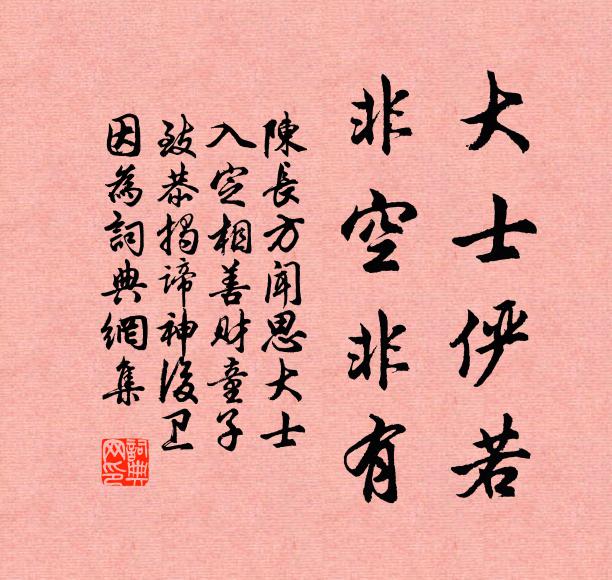 大士俨若
非空非有
陳長方聞思大士
入定相善財童子
致恭揭諦神後卫
因為詞典網集
詞典
网印